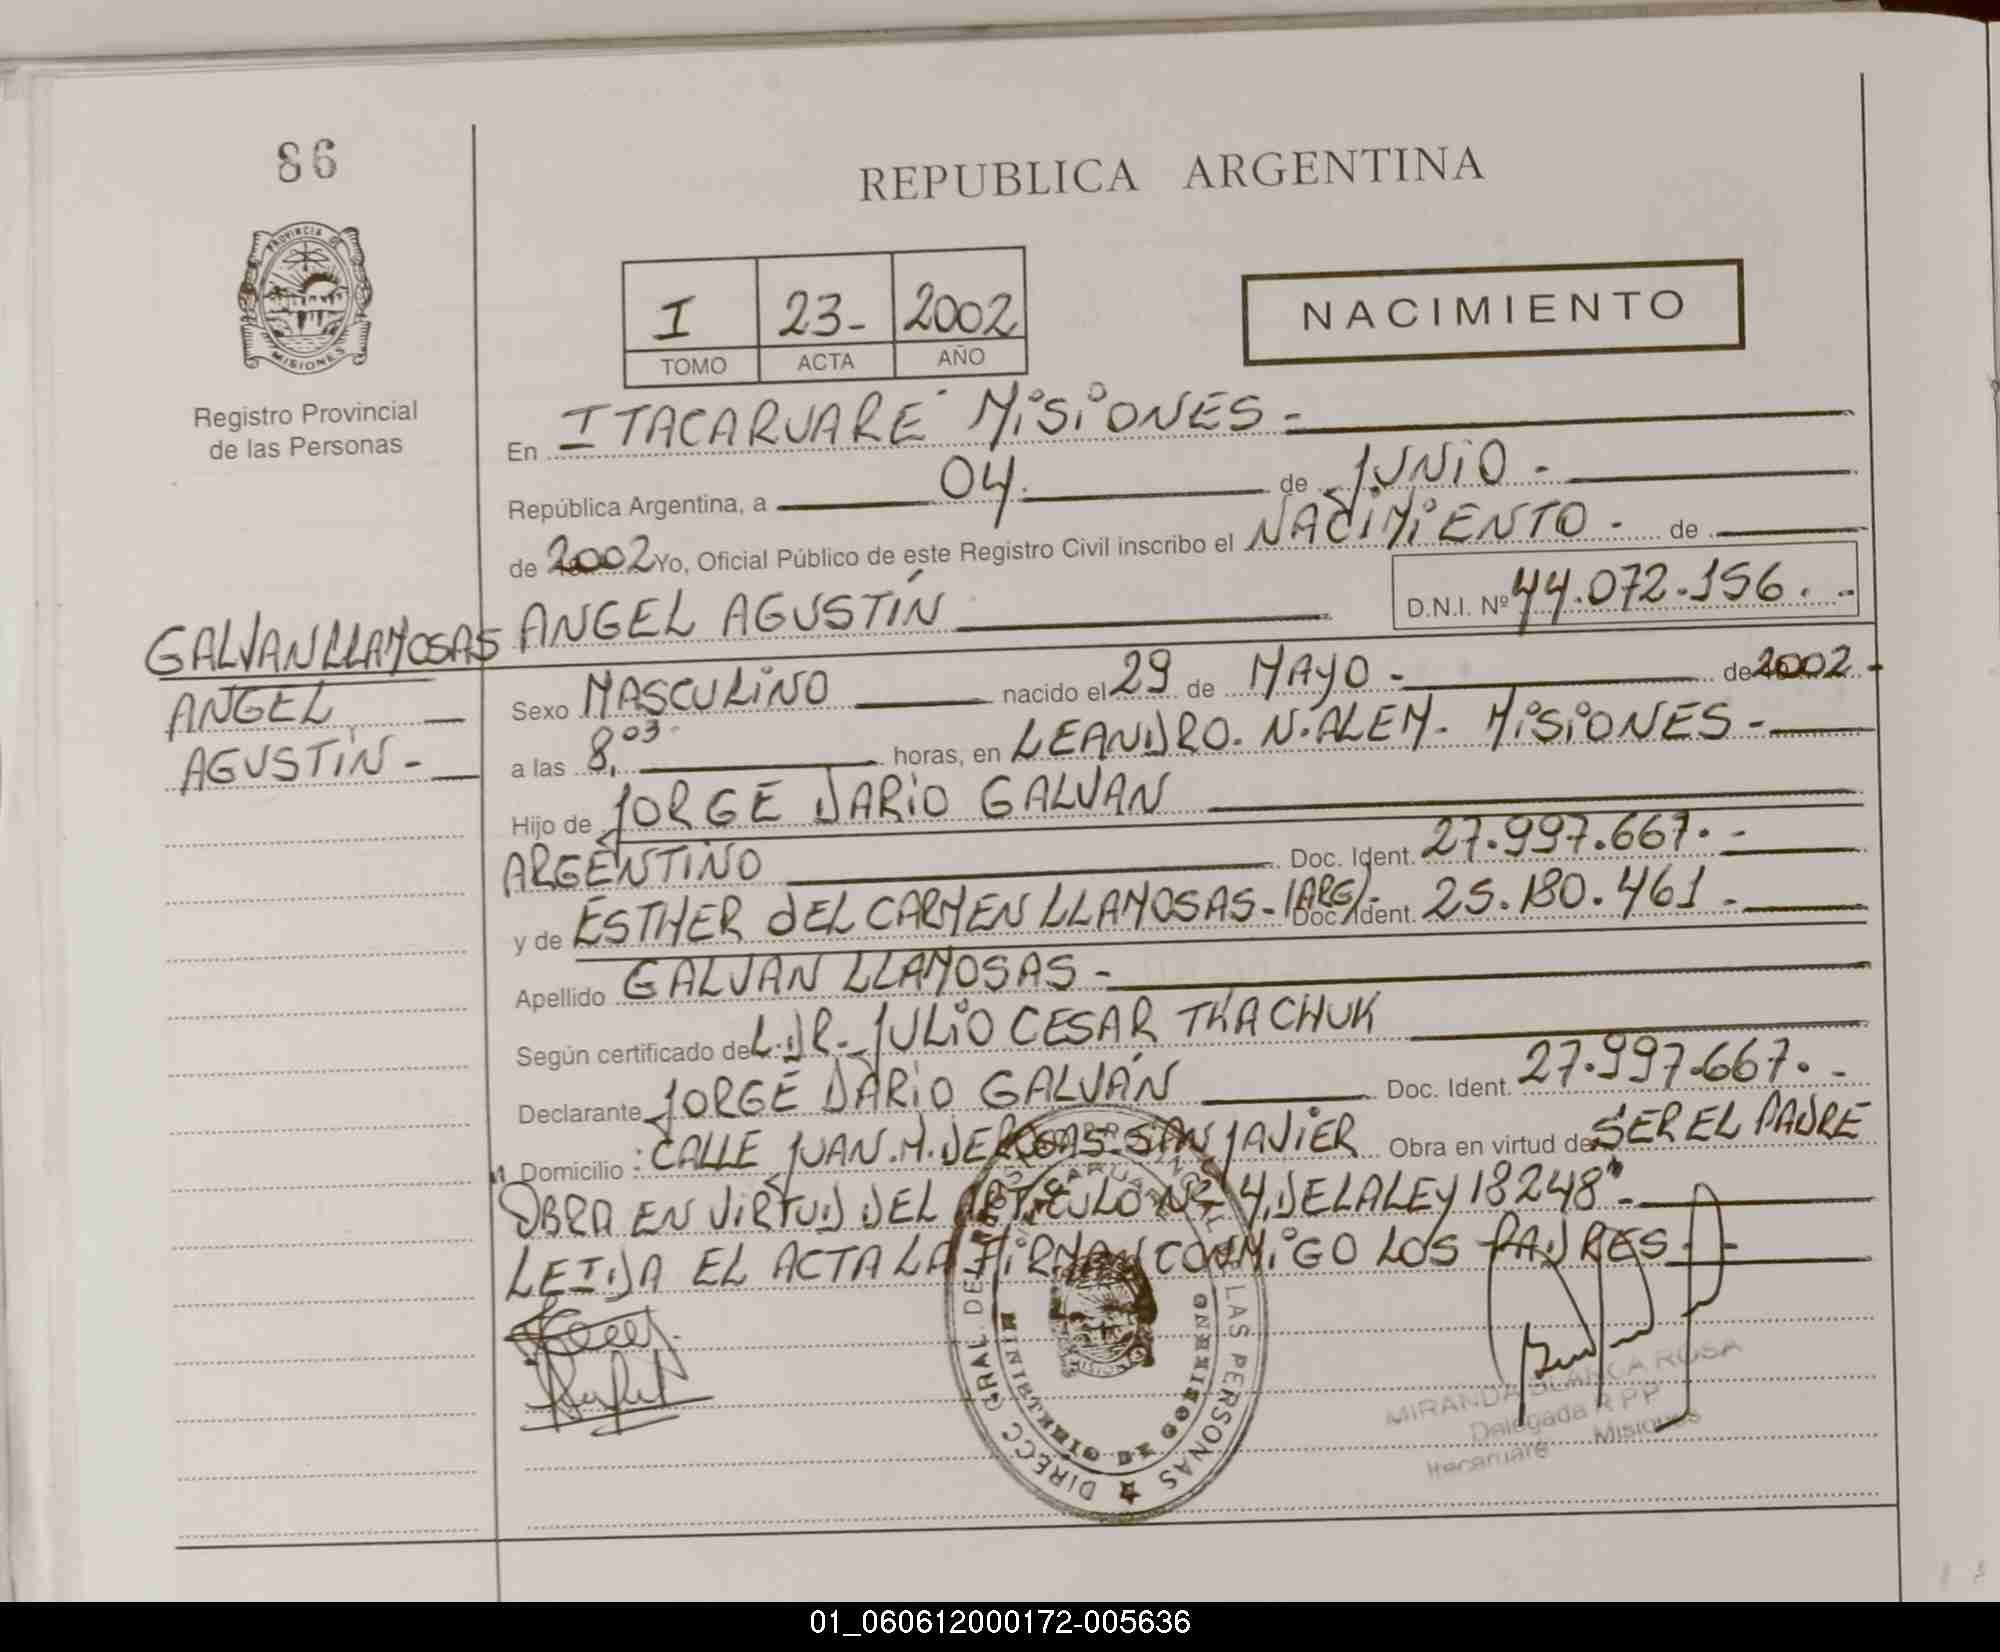 86
REPUBLICA ARGENTINA
PROVINCIA DE
MISIONES
Registro Provincial
de las Personas
I 23- 2002
TOMO ACTA AÑO
NACIMIENTO
En ITACARUARE MISIONES -
República Argentina, a 04. de JUNIO -
de 2002 Yo, Oficial Público de este Registro Civil inscribo el NACIMIENTO - de
GALVAN LLAMOSAS
ANGEL
AGUSTÍN -
ANGEL AGUSTÍN D.N.I. Nº 44.072.156. -
Sexo MASCULINO nacido el 29 de MAYO - de 2002 -
a las 8,03 horas, en LEANDRO. N. ALEM - MISIONES -
Hijo de JORGE DARIO GALVAN
ARGENTINO Doc. Ident. 27.997.667. -
y de ESTHER DEL CARMEN LLAMOSAS - (ARG) - Doc. Ident. 25.180.461 -
Apellido GALVAN LLAMOSAS -
Según certificado de L. DR. JULIO CESAR TKACHUK
Declarante JORGE DARIO GALVÁN Doc. Ident. 27.997.667. -
Domicilio : CALLE JUAN. M. DE ROSAS - SAN JAVIER Obra en virtud de SER EL PADRE
"OBRA EN VIRTUD DEL ARTICULO Nº 4, DE LA LEY 18248" -
LEIDA EL ACTA LA FIRMAN CONMIGO LOS PADRES -
DIRECC GRAL DEL LAS PERSONAS
MIRANDA BLANCA ROSA
Delegada R P P
Itacaruaré Misiones
01_060612000172-005636